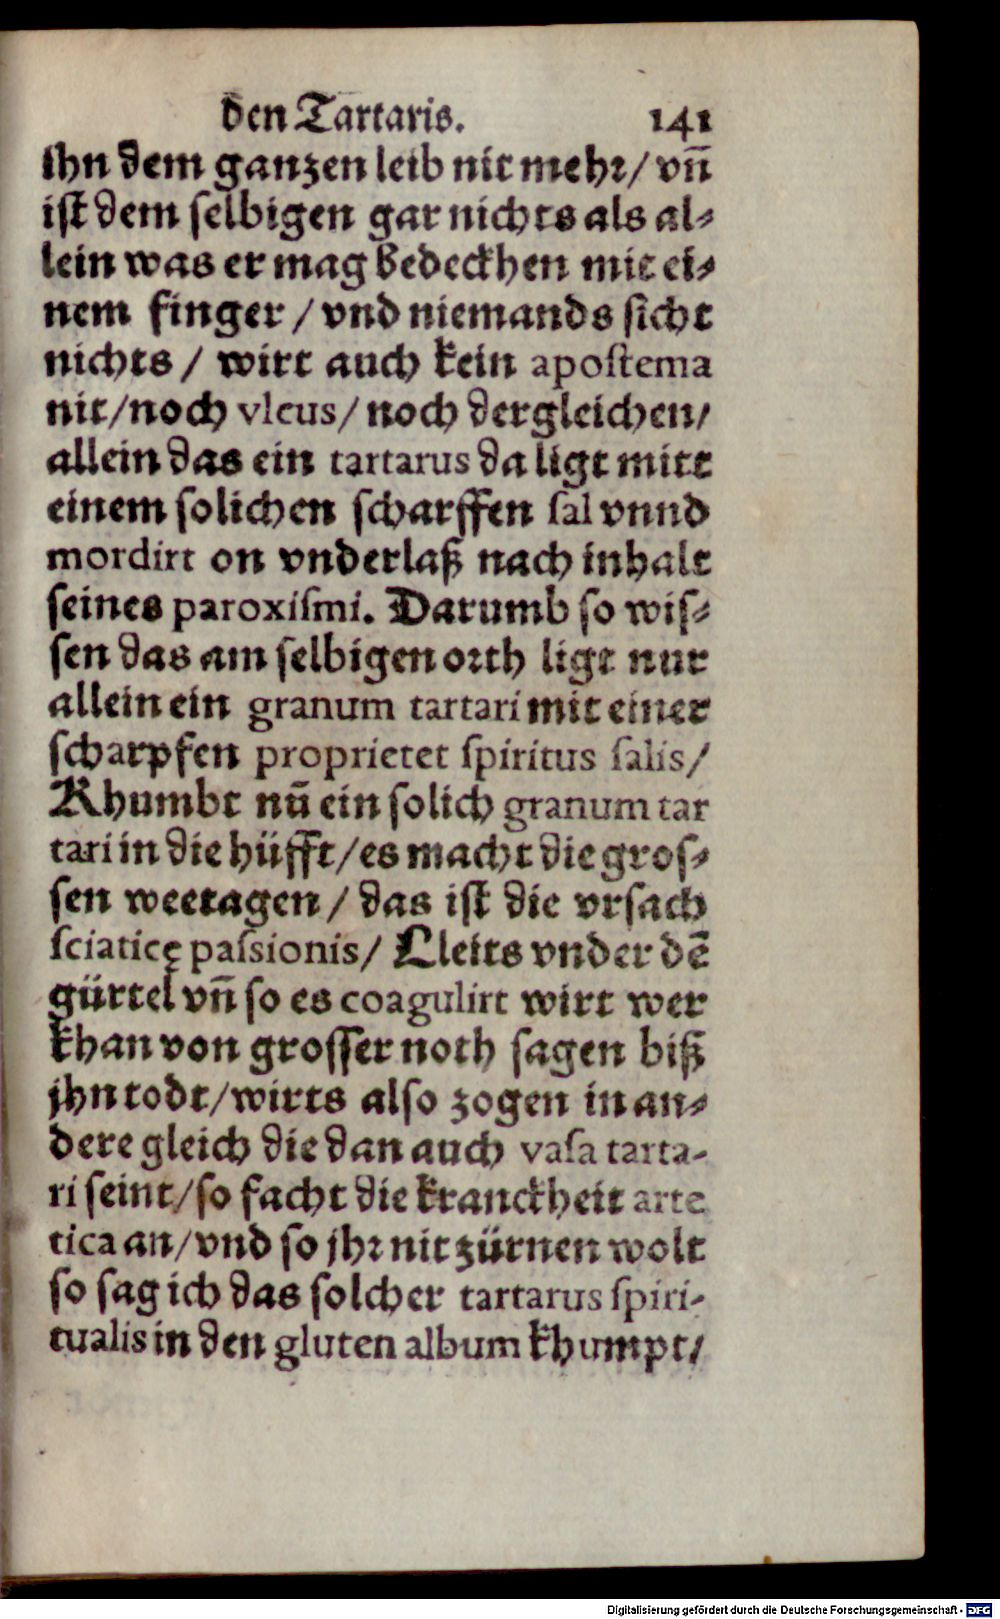 den Tartaris. 141
ihn dem ganzen leib nit mehr/ vn̄
ist dem selbigen gar nichts als al⸗
lein was er mag bedeckhen mit ei⸗
nem finger / vnd niemands sicht
nichts / wirt auch kein apostema
nit/noch vlcus/ noch dergleichen/
allein das ein tartarus da ligt mitt
einem solichen scharffen sal vnnd
mordirt on vnderlaß nach inhalt
seines paroxismi. Darumb so wis⸗
sen das am selbigen orth ligt nur
allein ein granum tartari mit einer
scharpfen proprietet spiritus salis/
Khumbt nū ein solich granum tar
tari in die hüfft/es macht die gros⸗
sen weetagen / das ist die vrsach
sciaticę passionis/ Lleits vnder dē
gürtel vn̄ so es coagulirt wirt wer
khan von grosser noth sagen biß
jhn todt/wirts also zogen in an⸗
dere gleich die dan auch vasa tarta-
ri seint/so facht die kranckheit arte
tica an/vnd so jhr nit zürnen wolt
so sag ich das solcher tartarus spiri-
tualis in den gluten album khumpt/
Digitalisierung gefördert durch die Deutsche Forschungsgemeinschaft - DFG